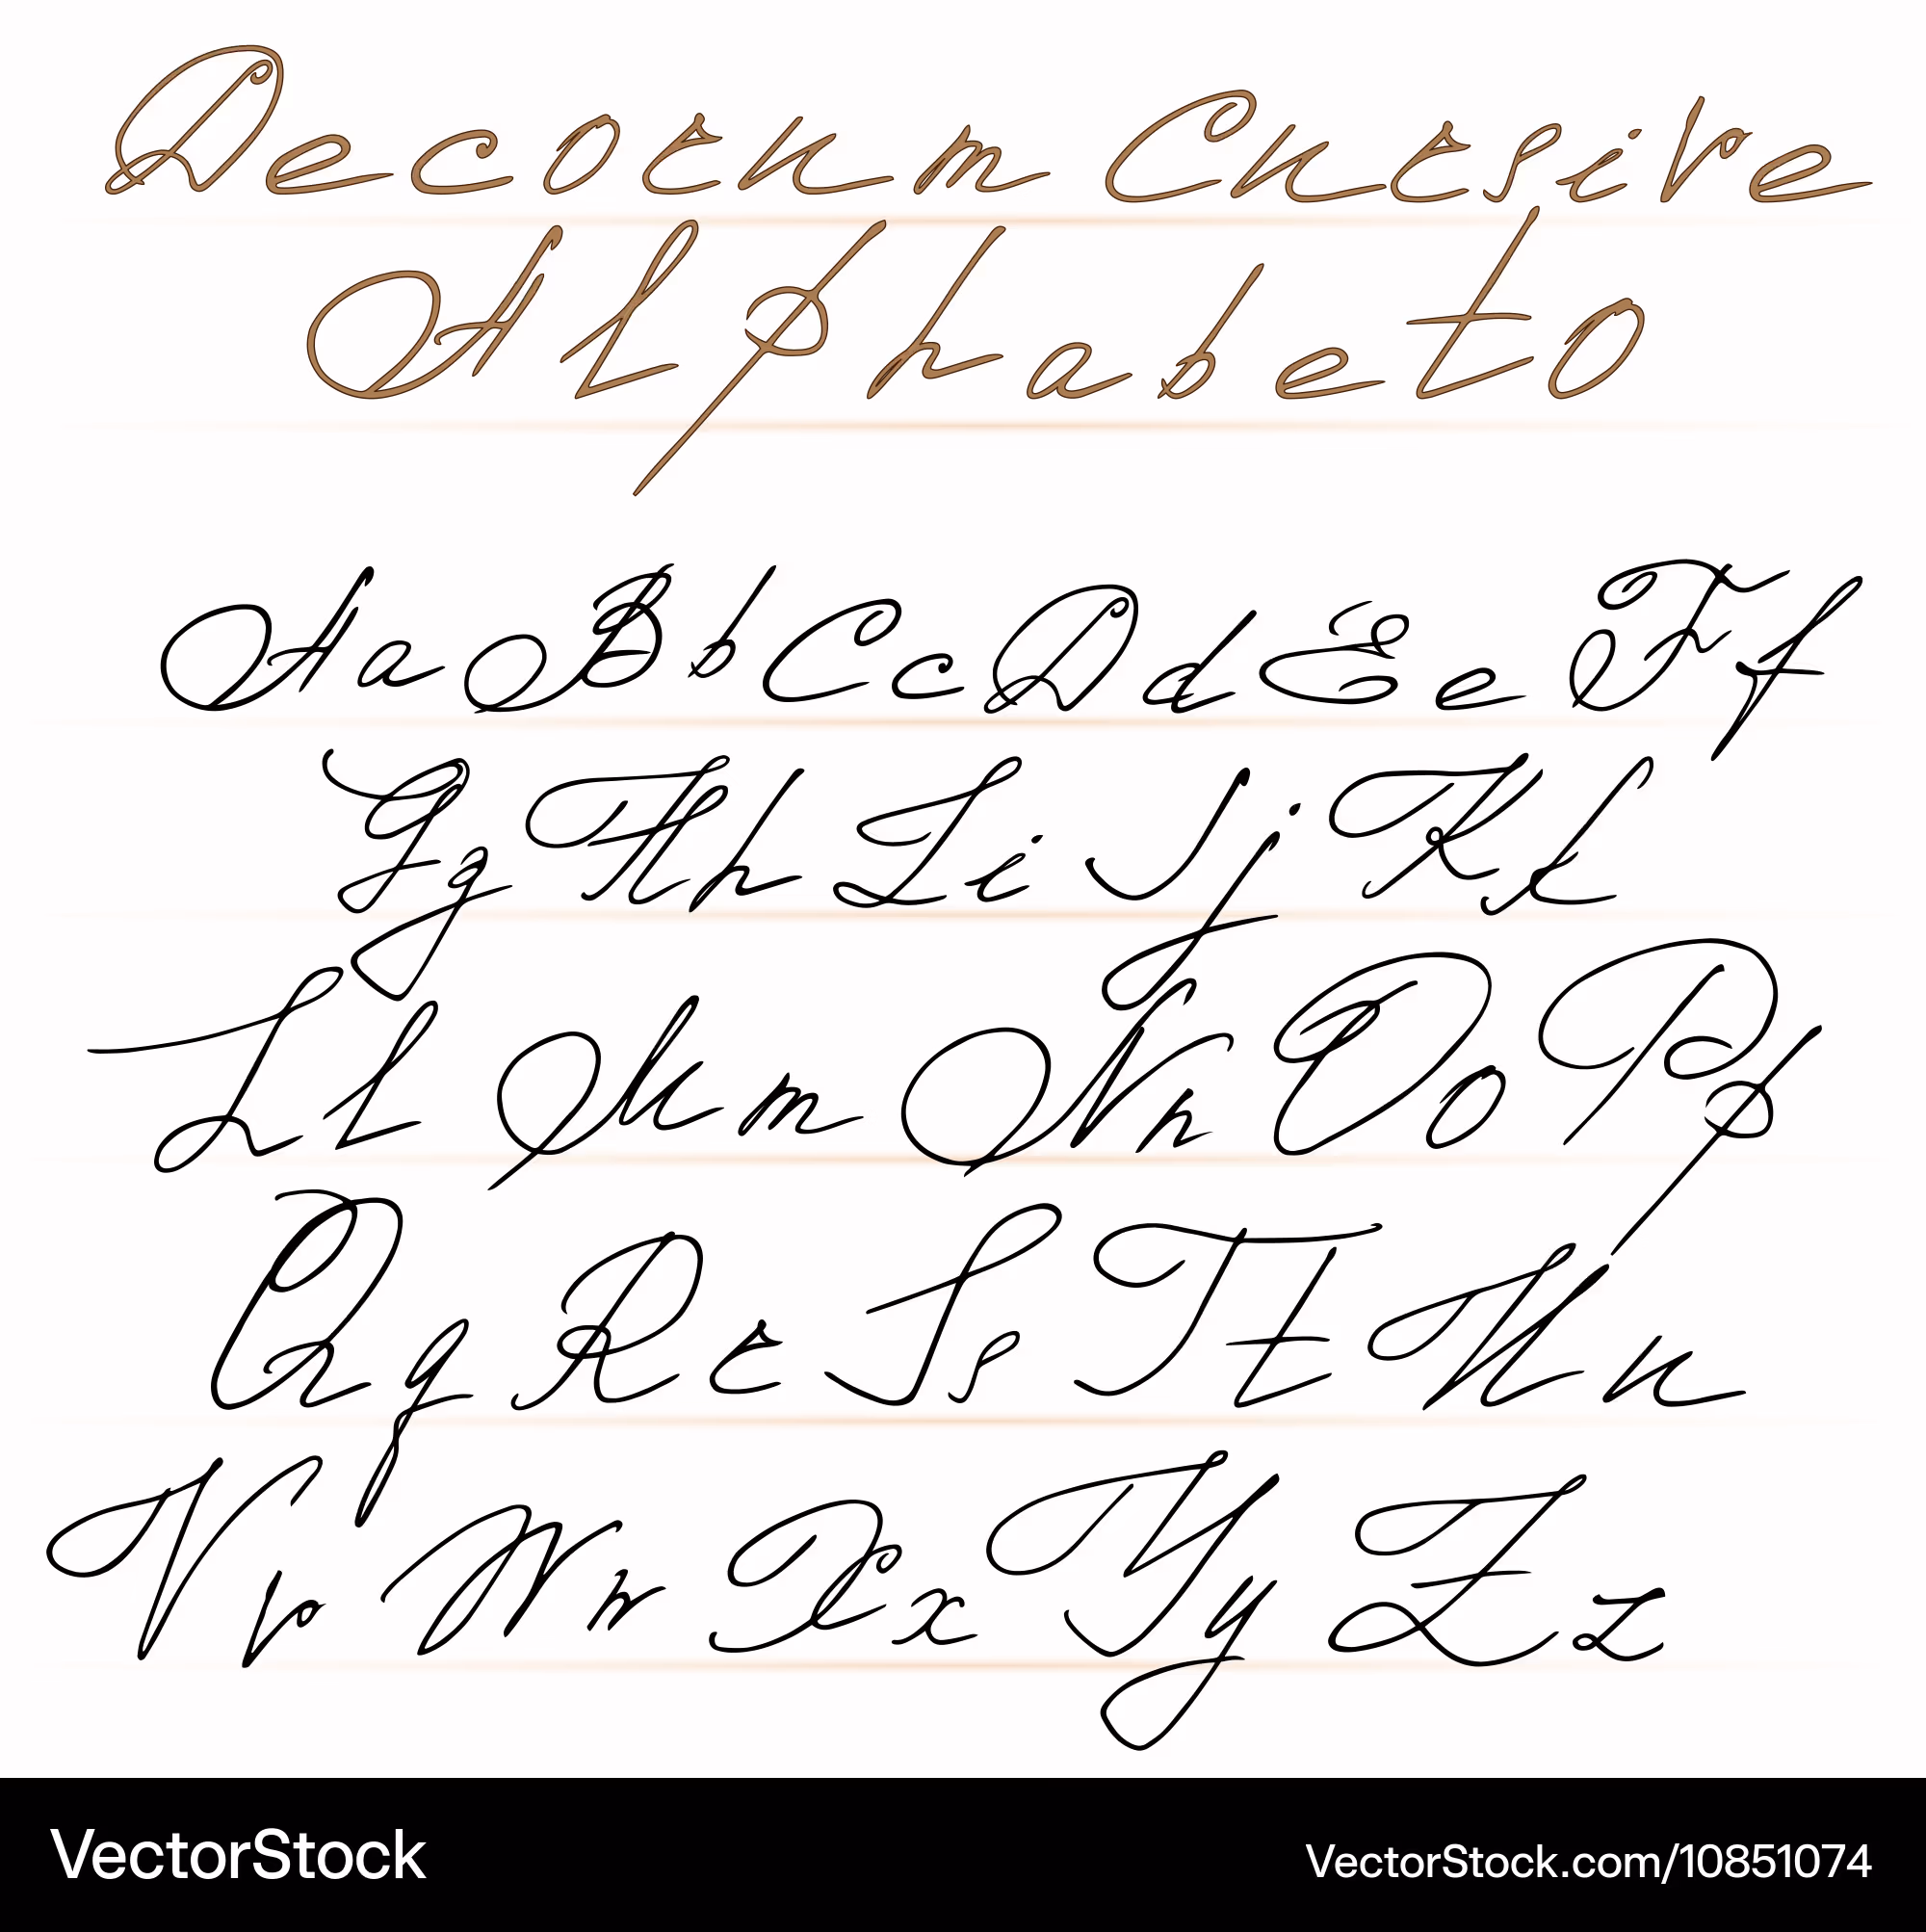 Decorum Cursive
Alphabeto
Aa Bb Cc Dd Ee Ff
Gg Hh Ii Jj Kk
Ll Mm Nn Oo Pp
Qq Rr Ss Tt Uu
Vv Ww Xx Yy Zz
VectorStock
VectorStock.com/10851074